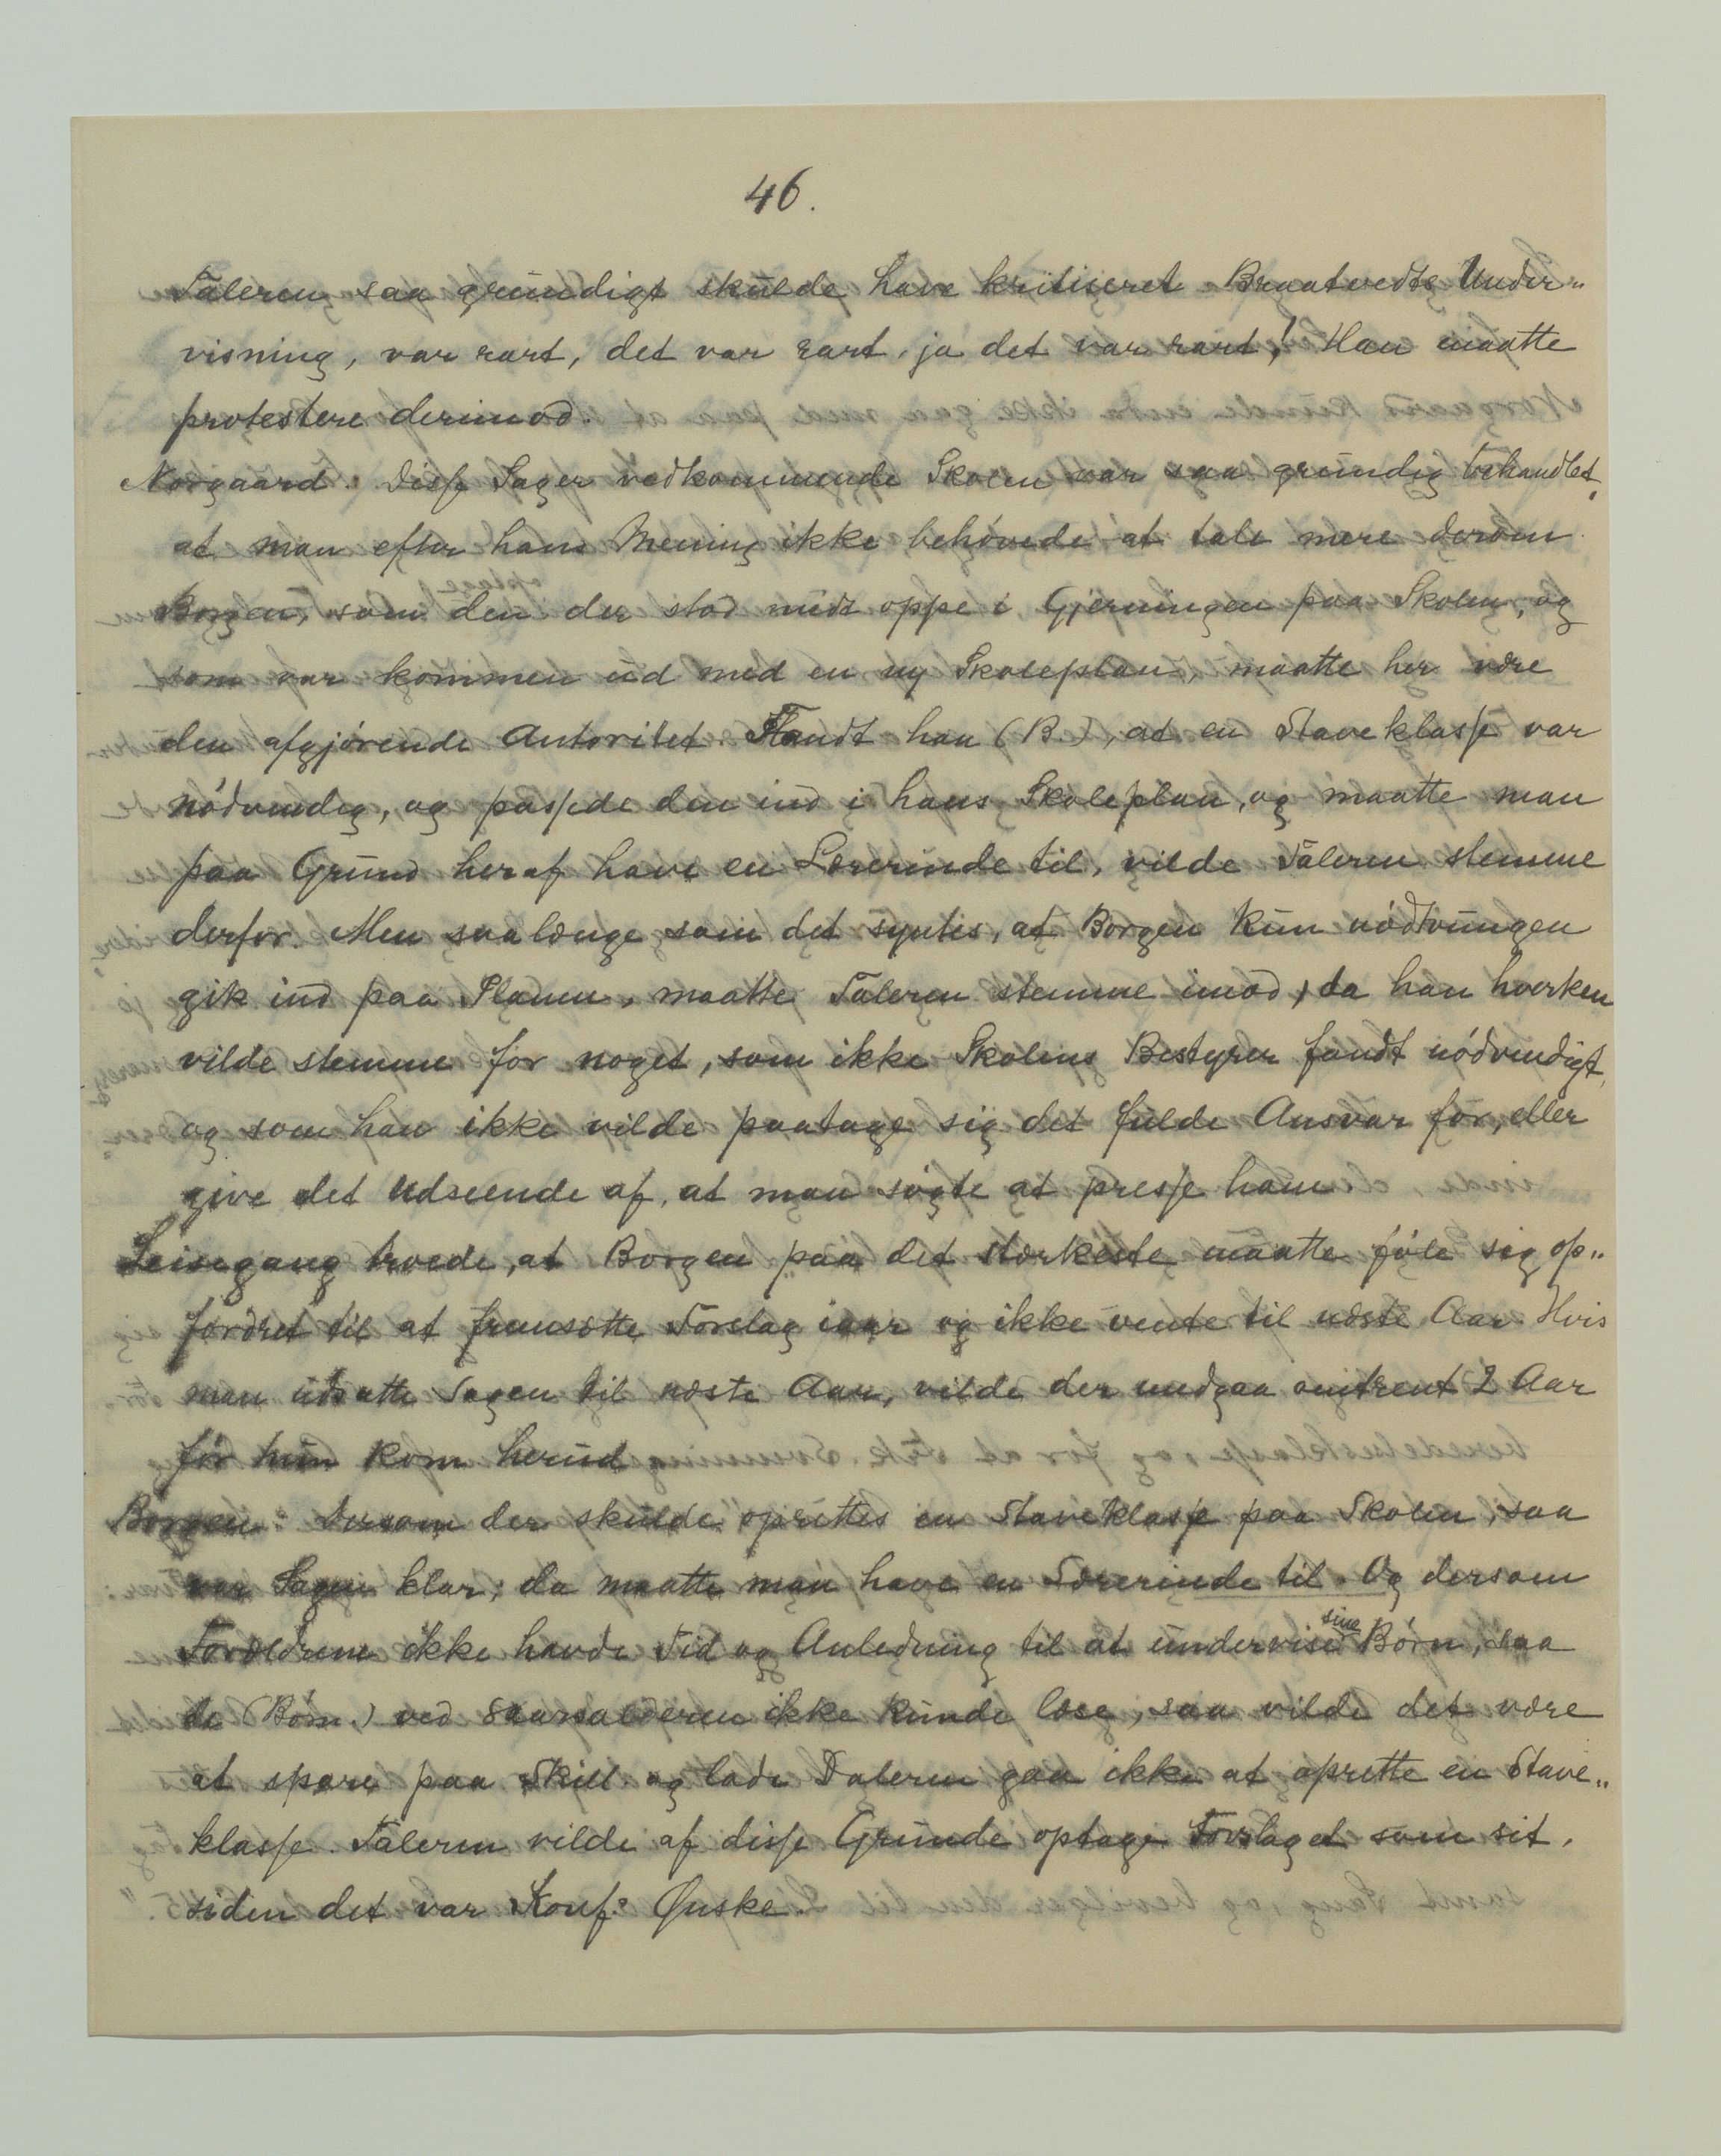 46.
Taleren saa grundigt skulde have kritiseret Braatvedts Under„
visning, var rart, det var rart, ja det var rart! Han maatte
protestere derimod.
Norgaard: Disse Sager vedkommende Skolen var saa grundig behandlet,
at man efter hans Mening ikke behøvede at tale mere derom.
Borgen, som den der stod midt oppe i Gjerningen paa Skolen, og
som var kommen ud med en ny Skoleplan, maatte her være
den afgjørende Autoritet. Fandt han (B.), at en Staveklasse var
nødvendig, og passede den ind i hans Skoleplan, og maatte man
paa Grund heraf have en Lærerinde til, vilde Taleren stemme
derfor. Men saalænge som det syntes, at Borgen kun nødtvungen
gik ind paa Planen, maatte Taleren stemme imod, da han hverken
vilde stemme for noget, som ikke Skolens Bestyrer fandt nødvendigt,
og som han ikke vilde paatage sig det fulde Ansvar for, eller
give det Udseende af, at man søgte at presse ham.
Leisegang troede, at Borgen paa det stærkeste maatte føle sig op„
fordret til at fremsætte Forslag iaar og ikke vente til næste Aar. Hvis
man udsatte Sagen til næste Aar, vilde der medgaa omtrent 2 Aar
før hun kom herud.
Borgen: Dersom der skulde oprettes en Staveklasse paa Skolen, saa
var Sagen klar; da maatte man have en Lærerinde til. Og dersom
Forældrene ikke havde Tid og Anledning til at undervise sine Børn, saa
de (Børn.) ved 8aarsalderen ikke kunde læse, saa vilde det være
at spare paa Skill. og lade Daleren gaa ikke at oprette en Stave„
klasse. Taleren vilde af disse Grunde optage Forslaget som sit,
siden det var Konf: Ønske.